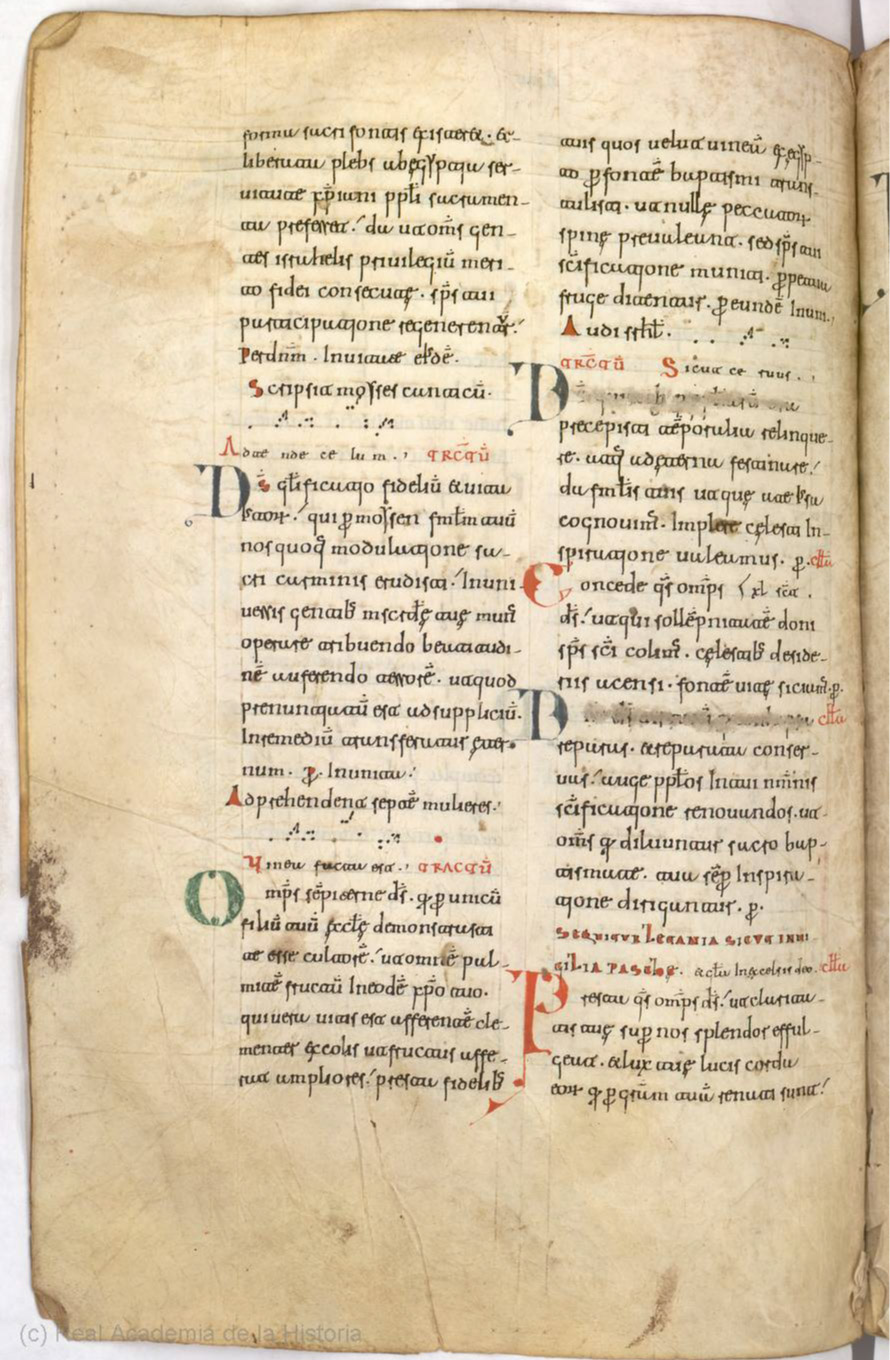 forma sacri fontis existeret. et
liberata plebs ab egyptia ser
uitute xp̄iani ppl̄i sacramen
ta preferret. da ut om̄s gen
tes israhelis priuilegiū meri
to fidei consecute. sp̄s tui
participatione regenerent̄.
Per dnm̄. In unitate eiusdē.
Scripsit moyses canticū.
Adtende celum. TRC̄TŪ
Ds̄ gl̄ificatio fideliū et uita
iustor. qui p mossen fml̄m tuū
nos quoq modulatione sa
cri carminis erudisti. In uni
uersis gentib misc̄rdę tuę mun̄
operare tribuendo beatitudi
nē auferendo terrorē. ut quod
pronuntiatū est ad suppliciū.
In remediū transferatur eter
num. p. In unitat.
Adprehendent septē mulieres.
Uinea facta est. TRACTŪ
Omp̄s sēpiterne ds̄. q p unicū
filiū tuū eccl̄ę demonstrasti
te esse cultorē. ut omnē pal
mitē fructū In eodē xp̄o tuo.
qui uera uitis est afferentē cle
menter excolis ut fructus affe
rat ampliores. presta fidelib
tuis quos uelut uineā ex egyp
to p fontē baptismi trans
tulisti. ut nullę peccator
spinę preualeant. sed sp̄s tui
sc̄ificatione muniti. ppetua
fruge ditentur. p eundē In uni.
Audi isrhl̄.
TRC̄TŪ Sicut ceruus.
precepisti tēporalia relinque
re. atq ad ęterna festinare.
da fml̄is tuis ut quę a te iussa
cognouim̄. Implere cęlesti In
spiratione ualeamus. p. cltā
Concede qs̄ omp̄s
ds̄. ut qui sollēpnitatē doni
sp̄s sc̄i colim̄. cęlestib deside
riis accensi. fontē uitę siciam̄. p.
cltā
reparas. et reparata conser
uas. auge ppl̄os In tui nmn̄is
sc̄ificatione renouandos. ut
om̄s q diluuntur sacro bap
tismate. tua sēp Inspira
tione dirigantur. p.
SEQUITUR LETANIA SICUT IN UI
GILIA PASCHE. et gl̄a In excelsis deo. cltā
Presta qs̄ omp̄s ds̄. ut clarita
tis tuę sup nos splendor efful
geat. et lux tuę lucis corda
eor q p grām tuā renati sunt.
(c) Real Academia de la Historia